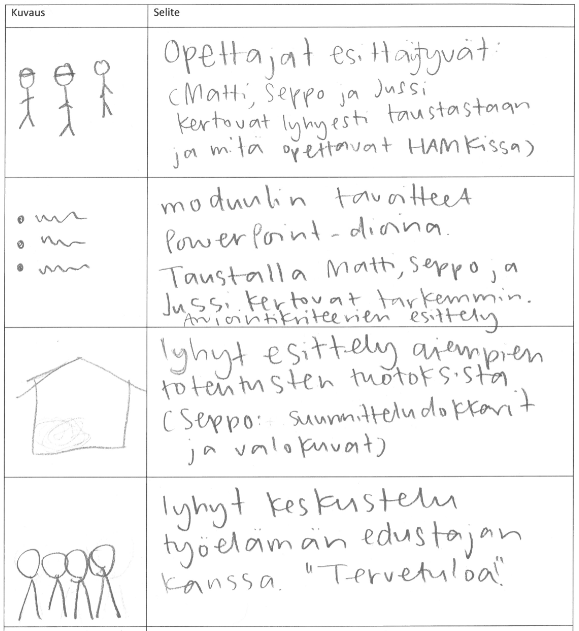 Kuvaus
Selite
Opettajat esittäytyvät:
(Matti, Seppo ja Jussi
kertovat lyhyesti taustastaan
ja mitä opettavat HAMKissa)
moduulin tavoitteet
PowerPoint-dioina.
Taustalla Matti, Seppo ja
Jussi kertovat tarkemmin.
Arviointikriteerien esittely
lyhyt esittely aiempien
toteutusten tuotoksista
(Seppo: suunnitteludokkarit
ja valokuvat)
lyhyt keskustelu
työelämän edustajan
kanssa. "Tervetuloa".